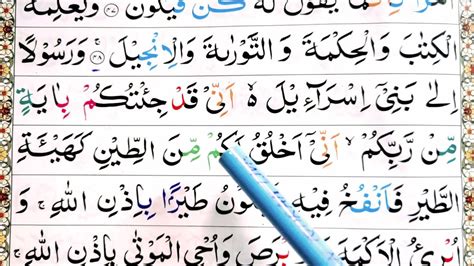 يَقُوۡلُ لَهٗ كُنۡ فَيَكُوۡنُ ۞ وَيُعَلِّمُهُ
الۡكِتٰبَ وَالۡحِكۡمَةَ وَالتَّوۡرٰٮةَ وَالۡاِنۡجِيۡلَ ۚ‏ ۞ وَرَسُوۡلًا
اِلٰى بَنِىۡۤ اِسۡرَآءِيۡلَ ۙ اَنِّىۡ قَدۡ جِئۡتُكُمۡ بِاٰيَةٍ
مِّنۡ رَّبِّكُمۡ ۙ اَنِّىۡۤ اَخۡلُقُ لَكُمۡ مِّنَ الطِّيۡنِ كَهَيۡـئَـةِ
الطَّيۡرِ فَاَنۡفُخُ فِيۡهِ طَيۡرًۢا بِاِذۡنِ اللّٰهِ‌ۚ وَ
اُبۡرِئُ الۡاَكۡمَهَ وَاُحۡىِ الۡمَوۡتٰى بِاِذۡنِ اللّٰهِ‌ۚ